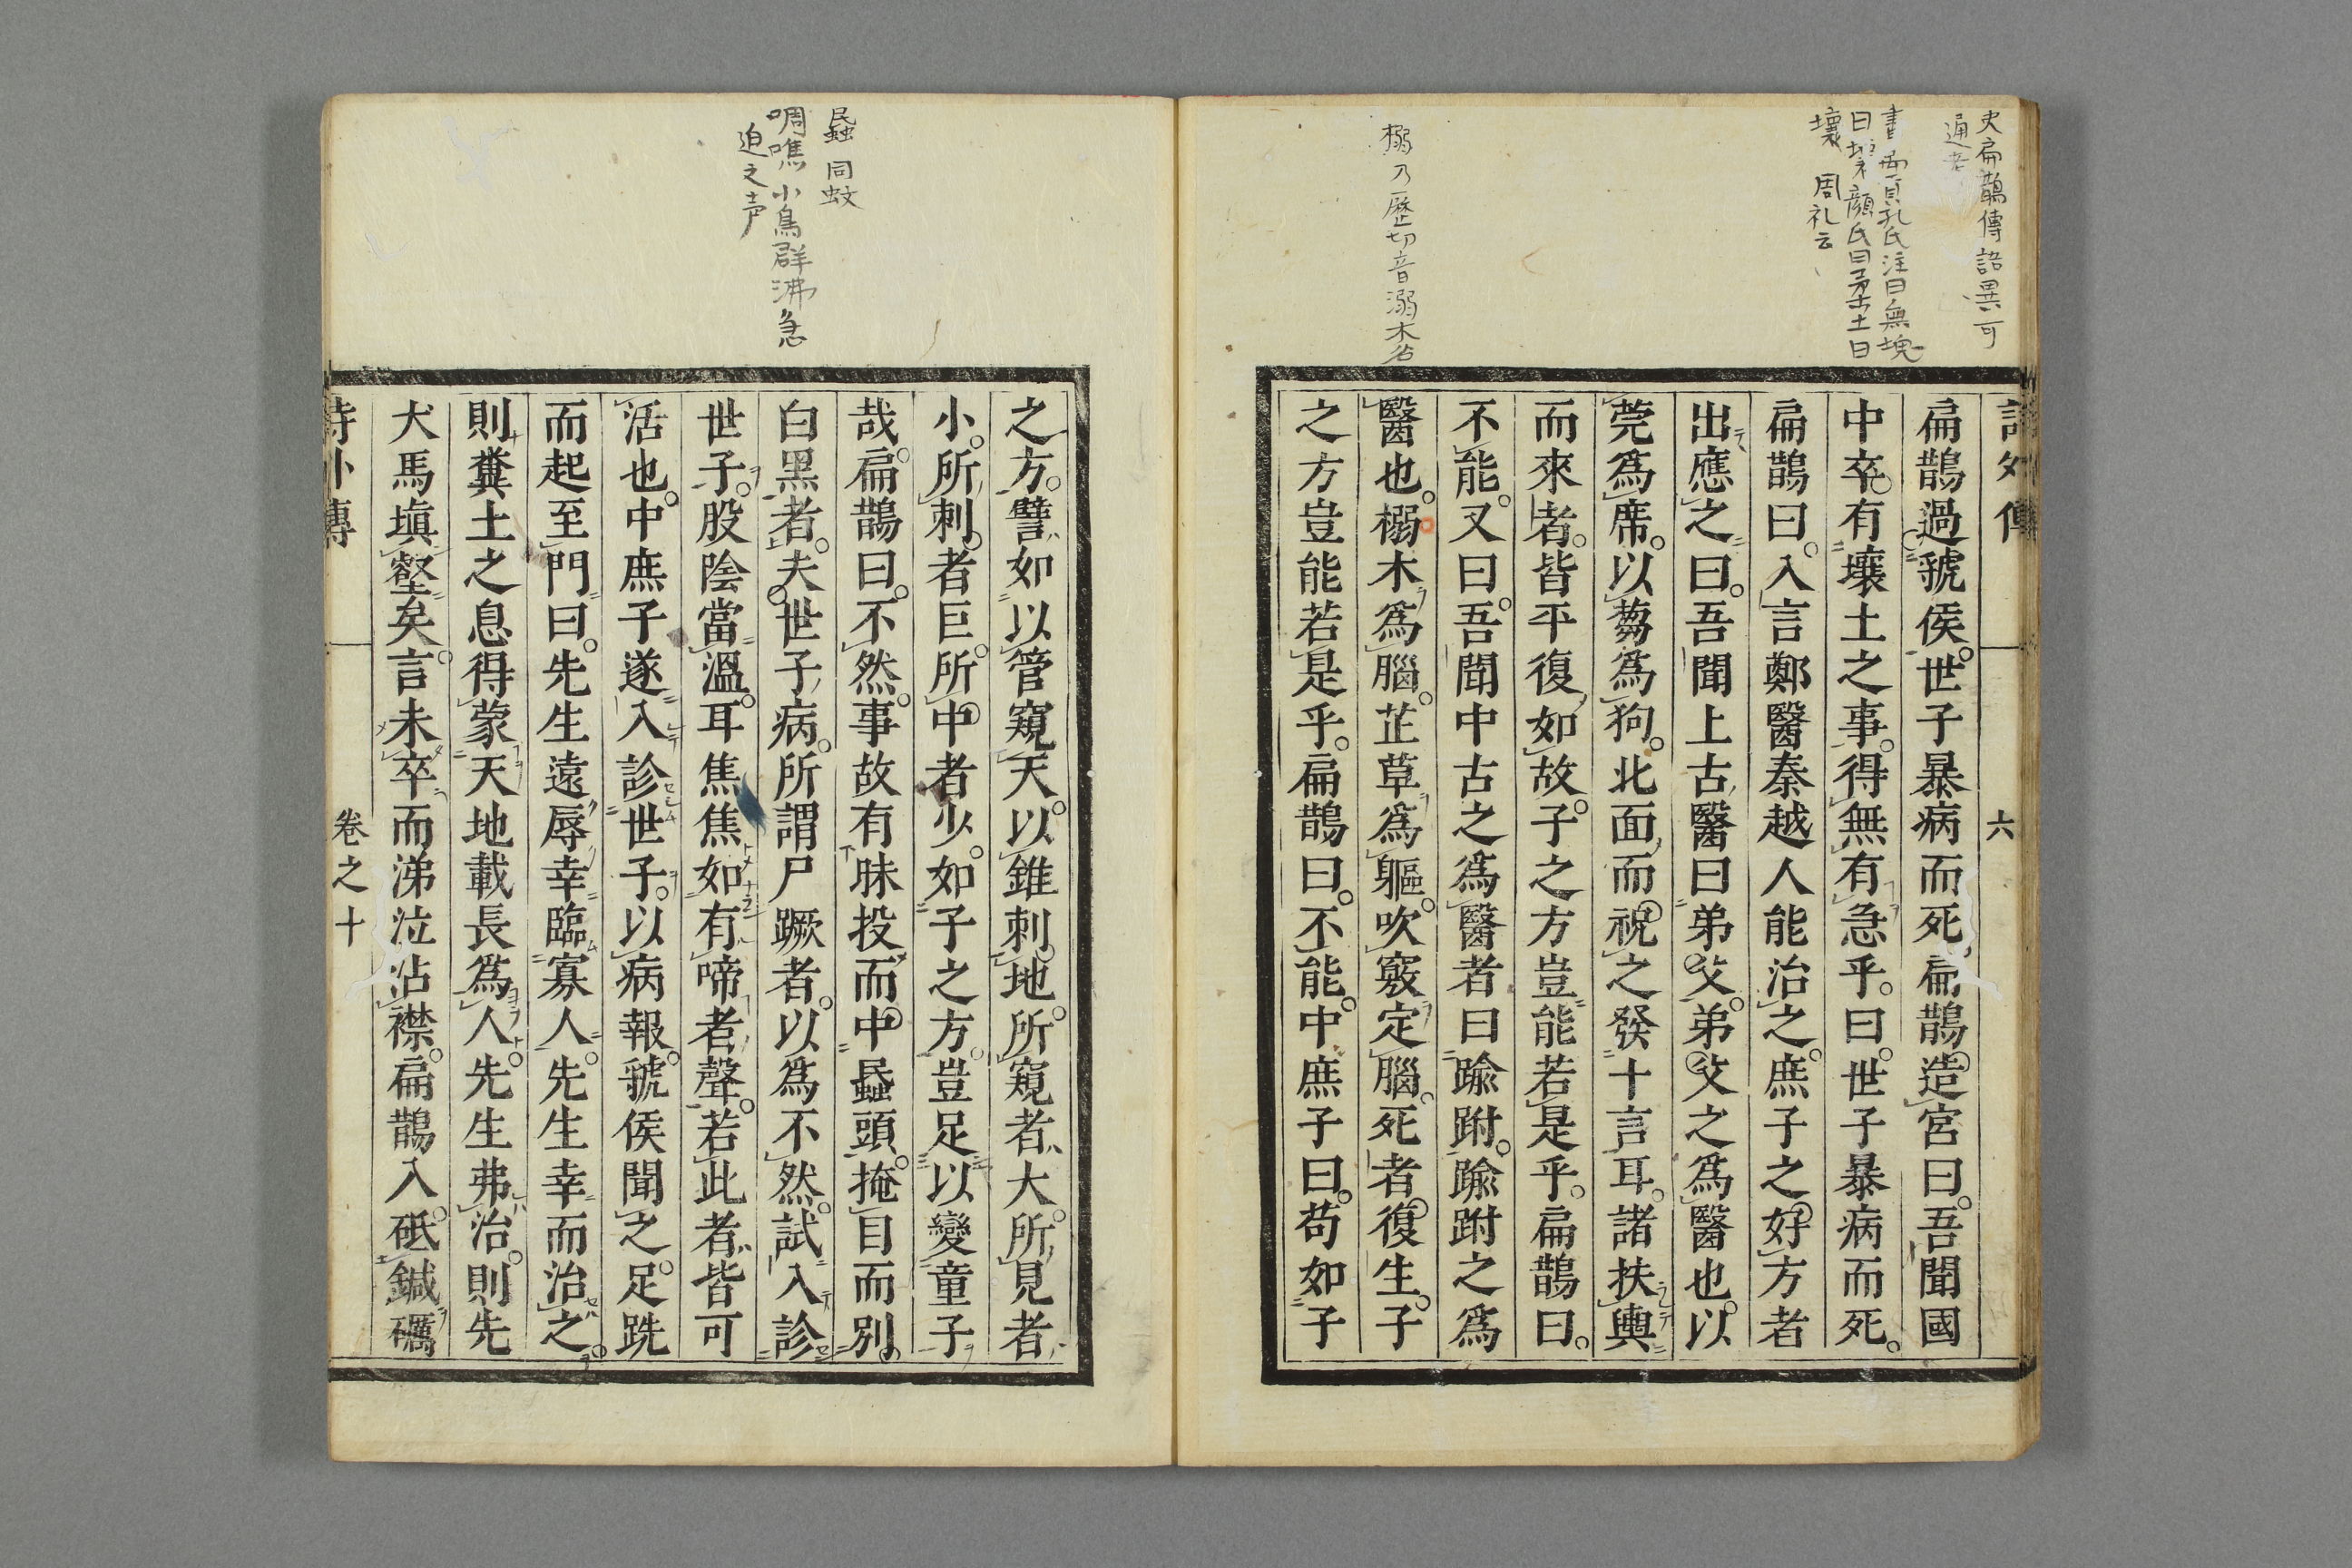 史扁鵲傳語異可
通考
書禹貢孔氏注曰無塊
曰壤顏氏曰柔土曰
壤 周礼云
榒乃歷切音溺木名
詩外傳
六
扁鵲過虢侯。世子暴病而死。扁鵲造宮曰。吾聞國
中卒有壤土之事。得無有急乎。曰。世子暴病而死。
扁鵲曰。入言鄭醫秦越人能治之。庶子之好方者
出應之曰。吾聞上古醫曰弟父。弟父之爲醫也。以
莞爲席。以蒭爲狗。北面而祝之。發十言耳。諸扶輿
而來者。皆平復如故。子之方豈能若是乎。扁鵲曰。
不能。又曰。吾聞中古之爲醫者曰踰跗。踰跗之爲
醫也。榒木爲腦。芷草爲軀。吹竅定腦。死者復生。子
之方豈能若是乎。扁鵲曰。不能。中庶子曰。苟如子
蟁 同蚊
啁噍 小鳥群沸急
迫之声
之方。譬如以管窺天。以錐刺地。所窺者大。所見者
小。所刺者巨。所中者少。如子之方。豈足以變童子
哉。扁鵲曰。不然。事故有昧投而中蟁頭。掩目而別
白黑者。夫世子病。所謂尸蹶者。以爲不然。試入診
世子。股陰當溫。耳焦焦如有啼者聲。若此者。皆可
活也。中庶子遂入診世子。以病報。虢侯聞之。足跣
而起至門曰。先生遠辱幸臨寡人。先生幸而治之。
則糞土之息得蒙天地載長爲人。先生弗治。則先
犬馬塡壑矣。言未卒而涕泣沾襟。扁鵲入。砥鍼礪
詩外傳
卷之十